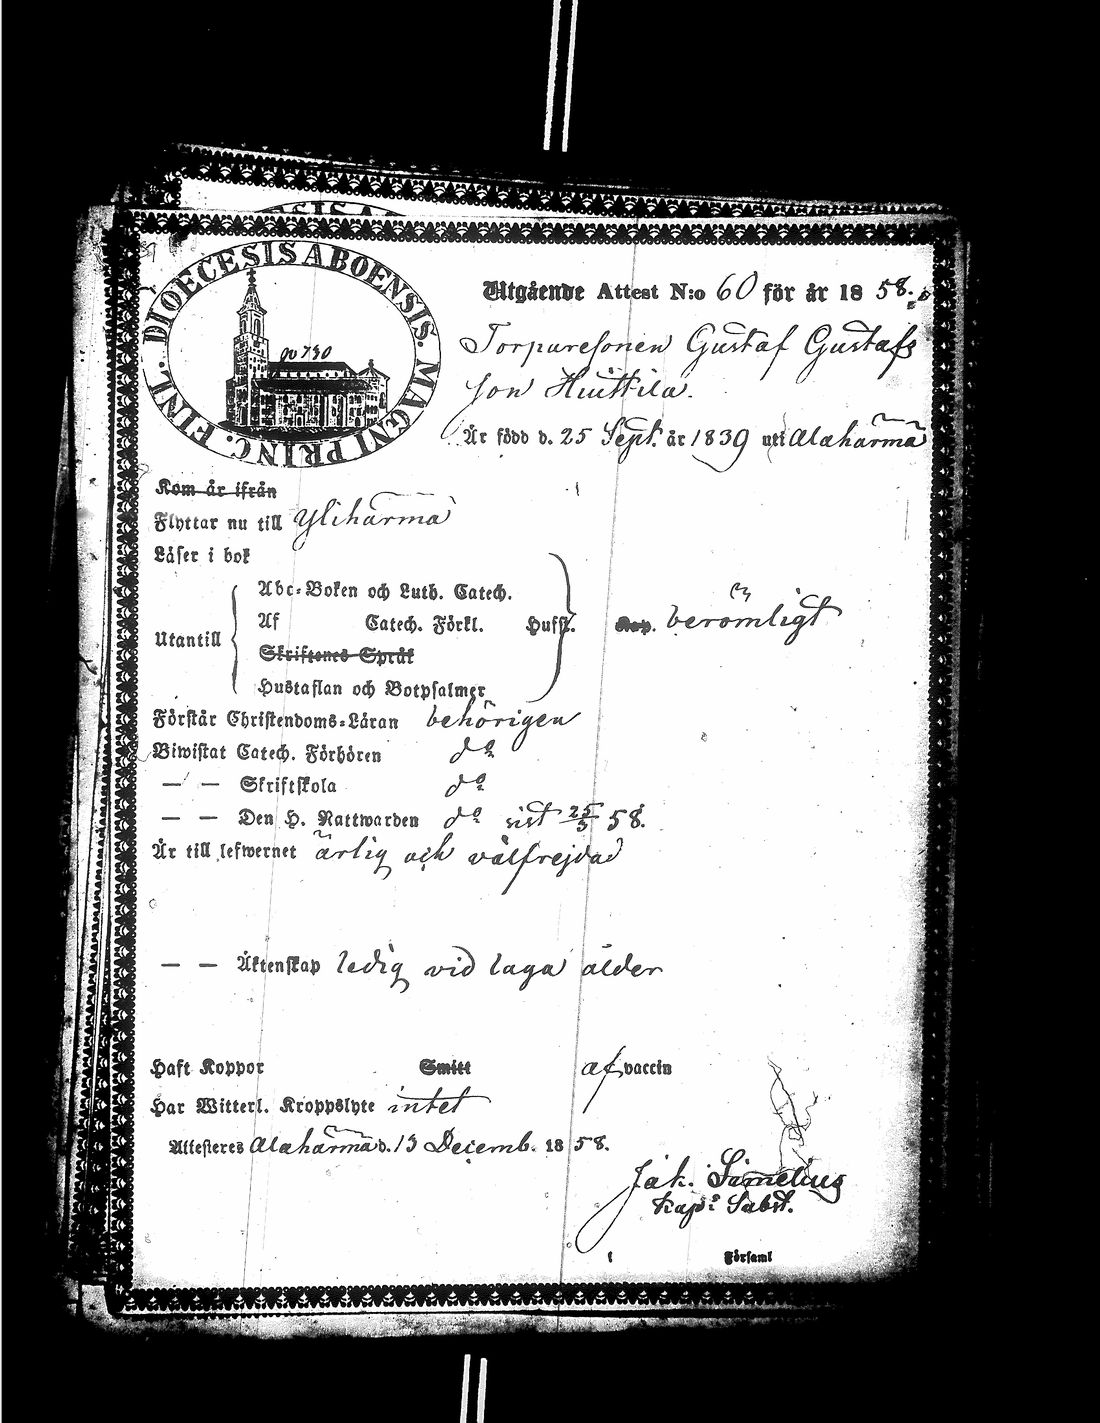 DIOECESIS ABOENSIS. MAGNI PRINC. FINL.
Utgående Attest N:o 60 för år 18 58.
Torparesonen Gustaf Gustafs
son Huittila.
Är född d. 25 Sept. år 1839 uti Alahärmä
Kom år ifrån
Flyttar nu till Ylihärmä
Läser i bok
Abc-Boken och Luth. Catech.
Utantill Af Catech. Förkl. Husst. Kap. berömligt
Skriftenes Språk
Hustaflan och Botpsalmer
Förstår Christendoms-Läran behörigen
Biwistat Catech. Förhören do
— — Skriftskola do
— — Den H. Nattwarden do sist 25/5 58.
Är till lefwernet ärlig och välfrejdad
— — Äktenskap ledig vid laga ålder
Haft Koppor Smitt af vaccin
Har Witterl. Kroppslyte intet
Attesteres Alahärmä d. 13 Decemb. 18 58.
Jak. Simelius
Kap. Subst.
Församl